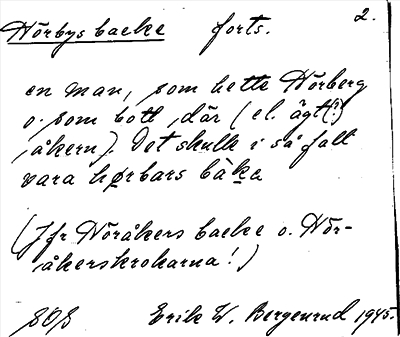 Hörbys backe forts. 2.
en man, som hette Hörberg
o. som bott där (el. ägt(?)
åkern). Det skulle i så fall
vara hørbars bàka
(Jfr Höråkers backe o. Hör-
åkerskrokarna!)
SOS Erik W. Bergenrud 1945.